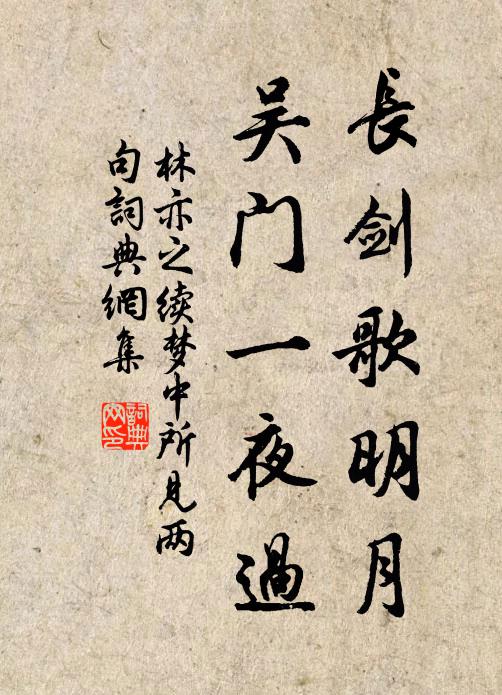 長剑歌明月
吴门一夜過
林亦之续梦中所見两
句詞典網集
詞典
网印